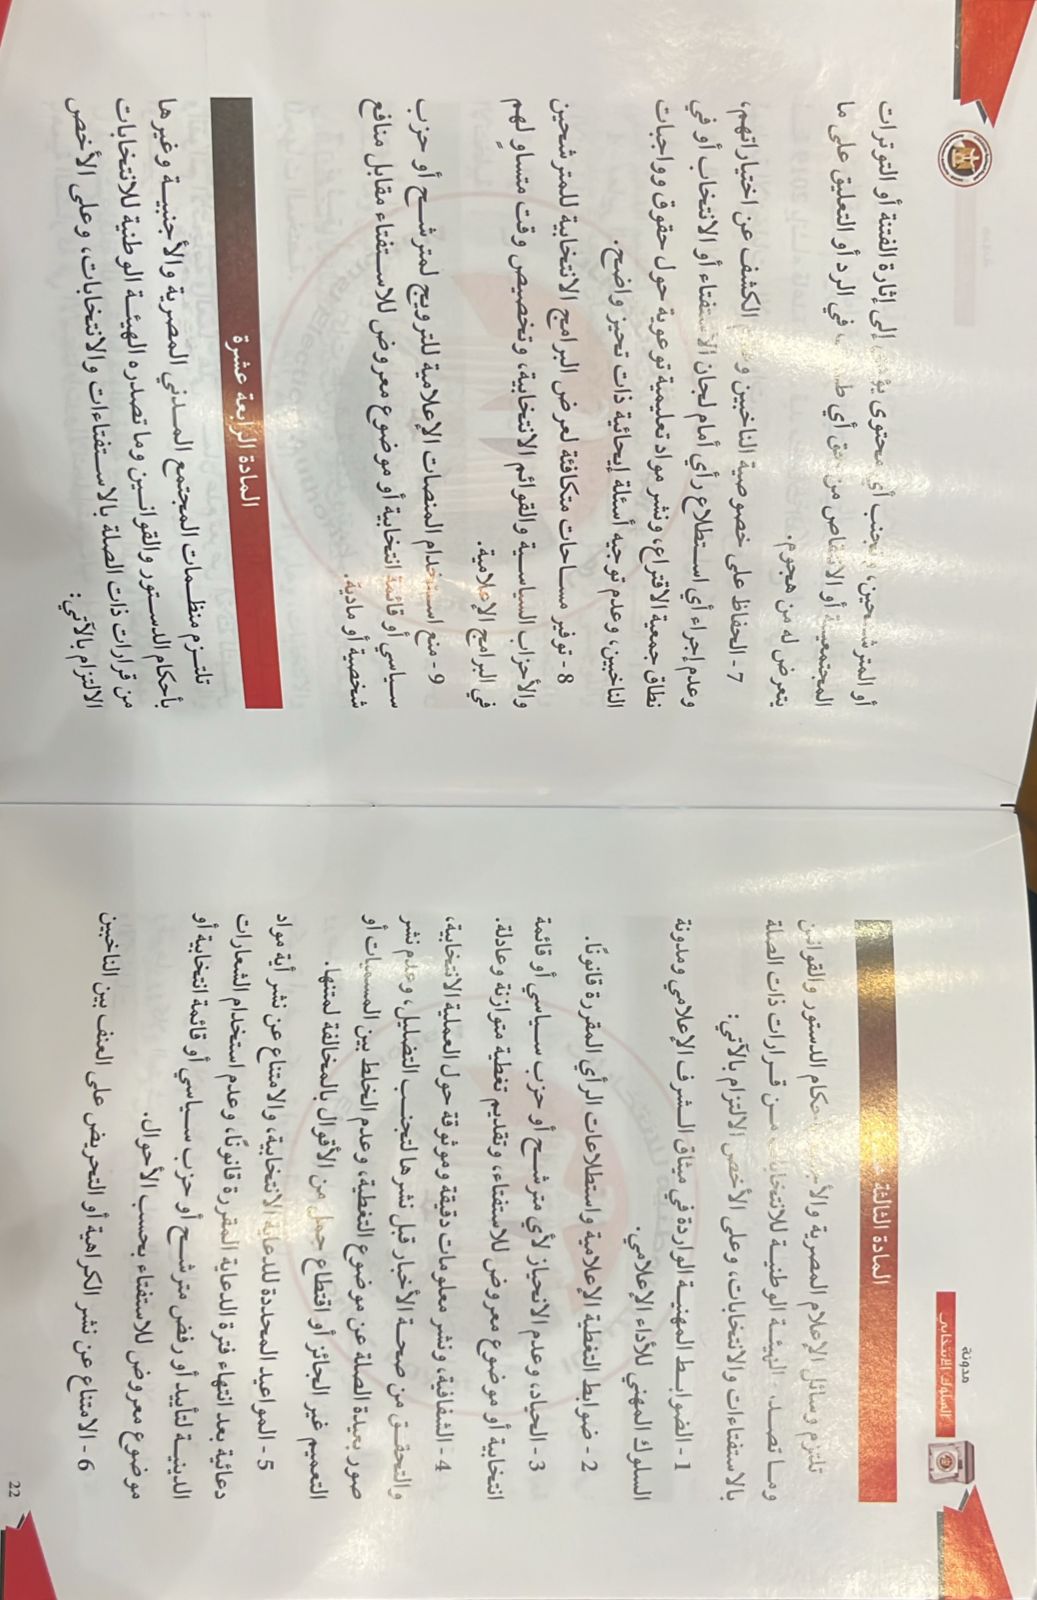 مدونة
السلوك الانتخابي
المادة الثالثة
تلتزم وسائل الإعلام المصرية والأجنبية بأحكام الدستور والقوانين
وما تصدره الهيئة الوطنية للانتخابات من قرارات ذات الصلة
بالاستفتاءات والانتخابات، وعلى الأخص الالتزام بالآتي:
1 - الضوابط المهنية الواردة في ميثاق الشرف الإعلامي ومدونة
السلوك المهني للأداء الإعلامي.
2 - ضوابط التغطية الإعلامية واستطلاعات الرأي المقررة قانونًا.
3 - الحياد، وعدم الانحياز لأي مترشح أو حزب سياسي أو قائمة
انتخابية أو موضوع معروض للاستفتاء، وتقديم تغطية متوازنة وعادلة.
4 - الشفافية، ونشر معلومات دقيقة وموثوقة حول العملية الانتخابية،
والتحقق من صحة الأخبار قبل نشرها لتجنب التضليل، وعدم نشر
صور بعيدة الصلة عن موضوع التغطية، وعدم الخلط بين المسميات أو
التعميم غير الجائز أو اقتطاع جمل من الأقوال بالمخالفة لمتنها.
5 - المواعيد المحددة للدعاية الانتخابية، والامتناع عن نشر أية مواد
دعائية بعد انتهاء فترة الدعاية المقررة قانونًا، وعدم استخدام الشعارات
الدينية لتأييد أو رفض مترشح أو حزب سياسي أو قائمة انتخابية أو
موضوع معروض للاستفتاء بحسب الأحوال.
6 - الامتناع عن نشر الكراهية أو التحريض على العنف بين الناخبين
22
أو المترشحين، وتجنب أي محتوى يؤدي إلى إثارة الفتنة أو التوترات
المجتمعية أو الانتقاص من حق أي في الرد أو التعليق على ما
يتعرض له من هجوم.
7 - الحفاظ على خصوصية الناخبين وعدم الكشف عن اختياراتهم،
وعدم إجراء أي استطلاع رأي أمام لجان الاستفتاء أو الانتخاب أو في
نطاق جمعية الاقتراع، ونشر مواد تعليمية توعوية حول حقوق وواجبات
الناخبين، وعدم توجيه أسئلة إيحائية ذات تحيز واضح.
8 - توفير مساحات متكافئة لعرض البرامج الانتخابية للمترشحين
والأحزاب السياسية والقوائم الانتخابية، وتخصيص وقت متساوٍ لهم
في البرامج الإعلامية.
9 - منع استخدام المنصات الإعلامية للترويج لمترشح أو حزب
سياسي أو قائمة انتخابية أو موضوع معروض للاستفتاء مقابل منافع
شخصية أو مادية.
المادة الرابعة عشرة
تلتزم منظمات المجتمع المدني المصرية والأجنبية وغيرها
بأحكام الدستور والقوانين وما تصدره الهيئة الوطنية للانتخابات
من قرارات ذات الصلة بالاستفتاءات والانتخابات، وعلى الأخص
الالتزام بالآتي: